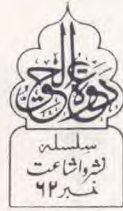 دعوة الحق
سلسلہ
نشر و اشاعت
نمبر ۶۲